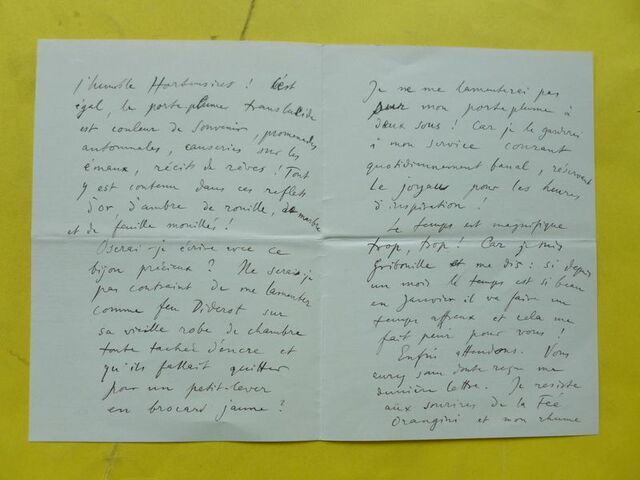 l'humble Hortensires ! C'est
égal, le porte plume translucide
est couleur de souvenirs, promenades
automnales, causeries sur les
émaux, récits de rêves ! Tout
y est contenu dans ces reflets
d'or d'ambre de rouille, de marbre
et de feuille mouillés !
Oserai-je écrire avec ce
bijou précieux ? Ne serai je
pas contraint de me lamenter
comme feu Diderot sur
sa vieille robe de chambre
toute tachée d'encre et
qu'il fallait quitter
pour un petit-lever
en brocard jaune ?
Je ne me lamenterai pas
sur mon porte plume à
deux sous ! Car je le garderai
à mon service courant
quotidiennement banal, réservant
le joyau pour les heures
d'inspiration !
Le temps est magnifique
trop, trop ! Car je suis
Gribouille et me dis : si depuis
un mois le temps est si beau
en Janvier il va faire un
temps affreux et cela me
fait peur pour vous !
Enfin attendons. Vous
aurez sans doute reçu ma
dernière lettre. Je résiste
aux sourires de la Fée
Orangini et mon rhume